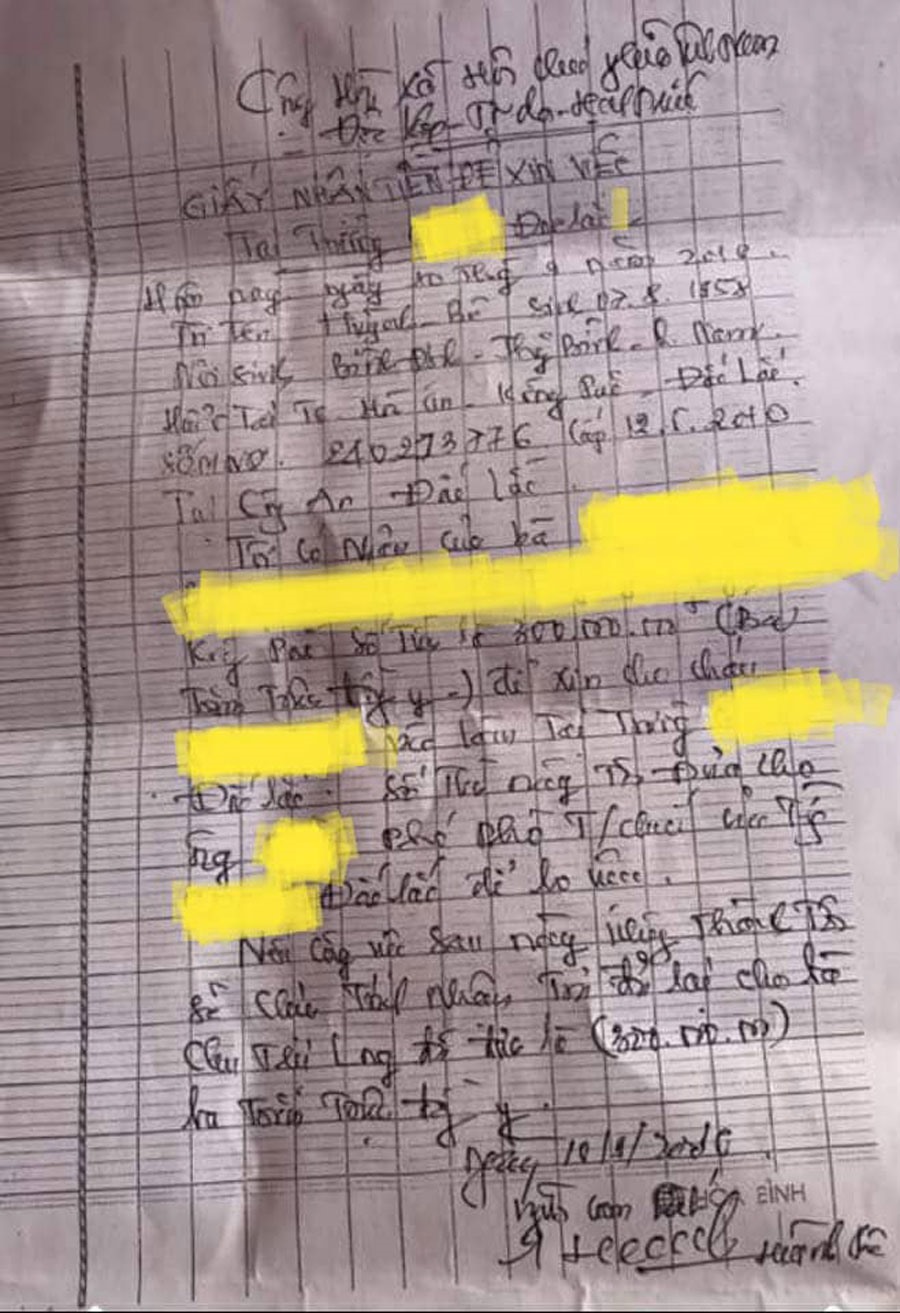 Cộng Hòa Xã Hội Chủ Nghĩa Việt Nam
Độc Lập - Tự do - Hạnh Phúc
GIẤY NHẬN TIỀN ĐỂ XIN VIỆC
Tại Trường Đắc Lắc
Hôm nay ngày 10 tháng 9 năm
Tôi tên Huỳnh Bê Sinh 07.8.1958
Nơi sinh Thăng Bình - Q Nam.
Hiện Tại Tc - Krông Pắc - Đắc Lắc.
Số CMND. 240273776 Cấp 12.5.2010
Tại Công An Đắc Lắc.
Tôi Có Nhận Của bà
Krông Pắc Số Tiền là 300.000.000đ (Ba
Trăm Triệu đồng y -) để xin cho cháu
vào làm Tại Trường
Đắc Lắc. Số Tiền này Tôi Đưa cho
Ông phó T/chức của Tỉnh
Đắc Lắc để lo việc.
Nếu Công việc sau này không Thành Tôi
sẽ Chịu Trách Nhiệm Trả lại cho bà
(300.000.000)
ba Trăm Triệu đồng y.
Ngày
BÌNH
Huỳnh Bê